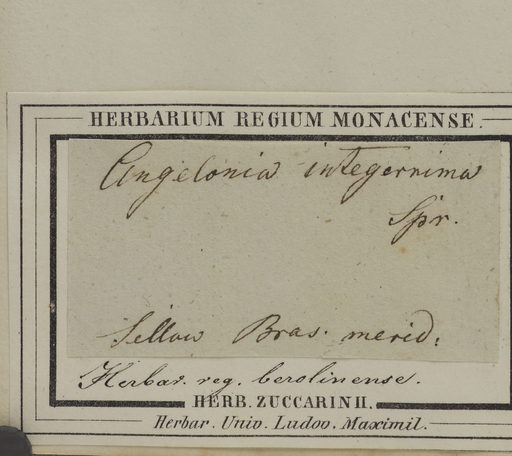 HERBARIUM REGIUM MONACENSE.
Angelonia integerrima
Spr.
Sellow Bras. merid.
Herbar. reg. berolinense.
HERB. ZUCCARINII.
Herbar. Univ. Ludov. Maximil.